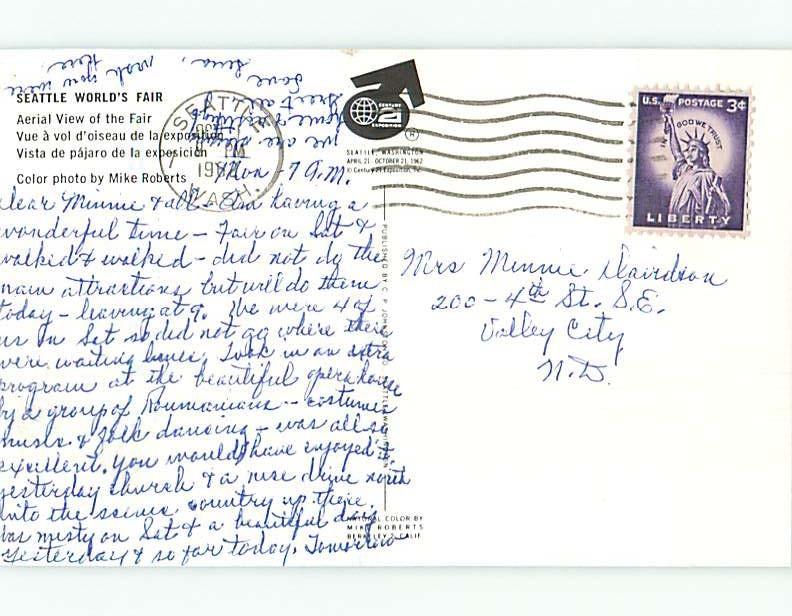 SEATTLE WORLD'S FAIR
Aerial View of the Fair
Vue à vol d'oiseau de la exposition
Vista de pájaro de la exposición
Color photo by Mike Roberts
SEATTLE
WASH.
PM
CENTURY
21
EXPOSITION
®
SEATTLE, WASHINGTON
APRIL 21 - OCTOBER 21, 1962
© Century 21 Exposition, Inc.
U.S. POSTAGE 3¢
IN GOD WE TRUST
LIBERTY
Mon - 7 A.M.
Dear Minnie & all - Am having a
wonderful time - Fair on Sat &
walked & walked - did not do the
main attractions but will do them
today - leaving at 9. We were 4 of
us on Sat so did not go where there
were waiting lines. Took in an extra
program at the beautiful opera house
by a group of Roumanians - costumes
music & folk dancing - was all so
excellent. You would have enjoyed it
yesterday church & a nice drive north
into the scenic country up there.
Was misty on Sat & a beautiful day
Yesterday & so far today. Tomorrow
we are
Love
wish you were
here.
Mrs Minnie Davidson
200 - 4th St. S.E.
Valley City
N.D.
NATURAL COLOR BY
MIKE ROBERTS
BERKELEY 2, CALIF.